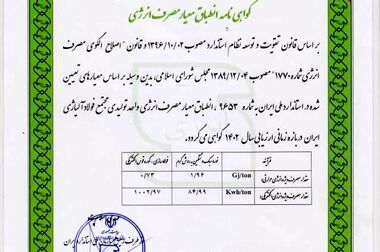 گواهی نامه انطباق معیار مصرف انرژی
بر اساس قانون تقویت و توسعه نظام استاندارد مصوب ۱۳۹۶/۱۰/۰۲ و قانون "اصلاح الگوی مصرف
انرژی شماره ۱۷۷۰" مصوب ۱۳۸۹/۱۲/۰۴ مجلس شورای اسلامی، بدین وسیله بر اساس معیارهای تعیین
شده در استاندارد ملی ایران به شماره ۹۶۵۳ ، انطباق معیار مصرف انرژی واحد تولیدی مجتمع فولاد آلیاژی
ایران در بازه زمانی ارزیابی سال ۱۴۰۲ گواهی می گردد.
فرآیند
فولادسازی - کوره قوس الکتریکی
مقدار مصرف ویژه انرژی حرارتی Gj/ton ۱/۹۶ ۰/۷۳
مقدار مصرف ویژه انرژی الکتریکی Kwh/ton ۸۴/۹۹ ۱۰۰۲/۹۷